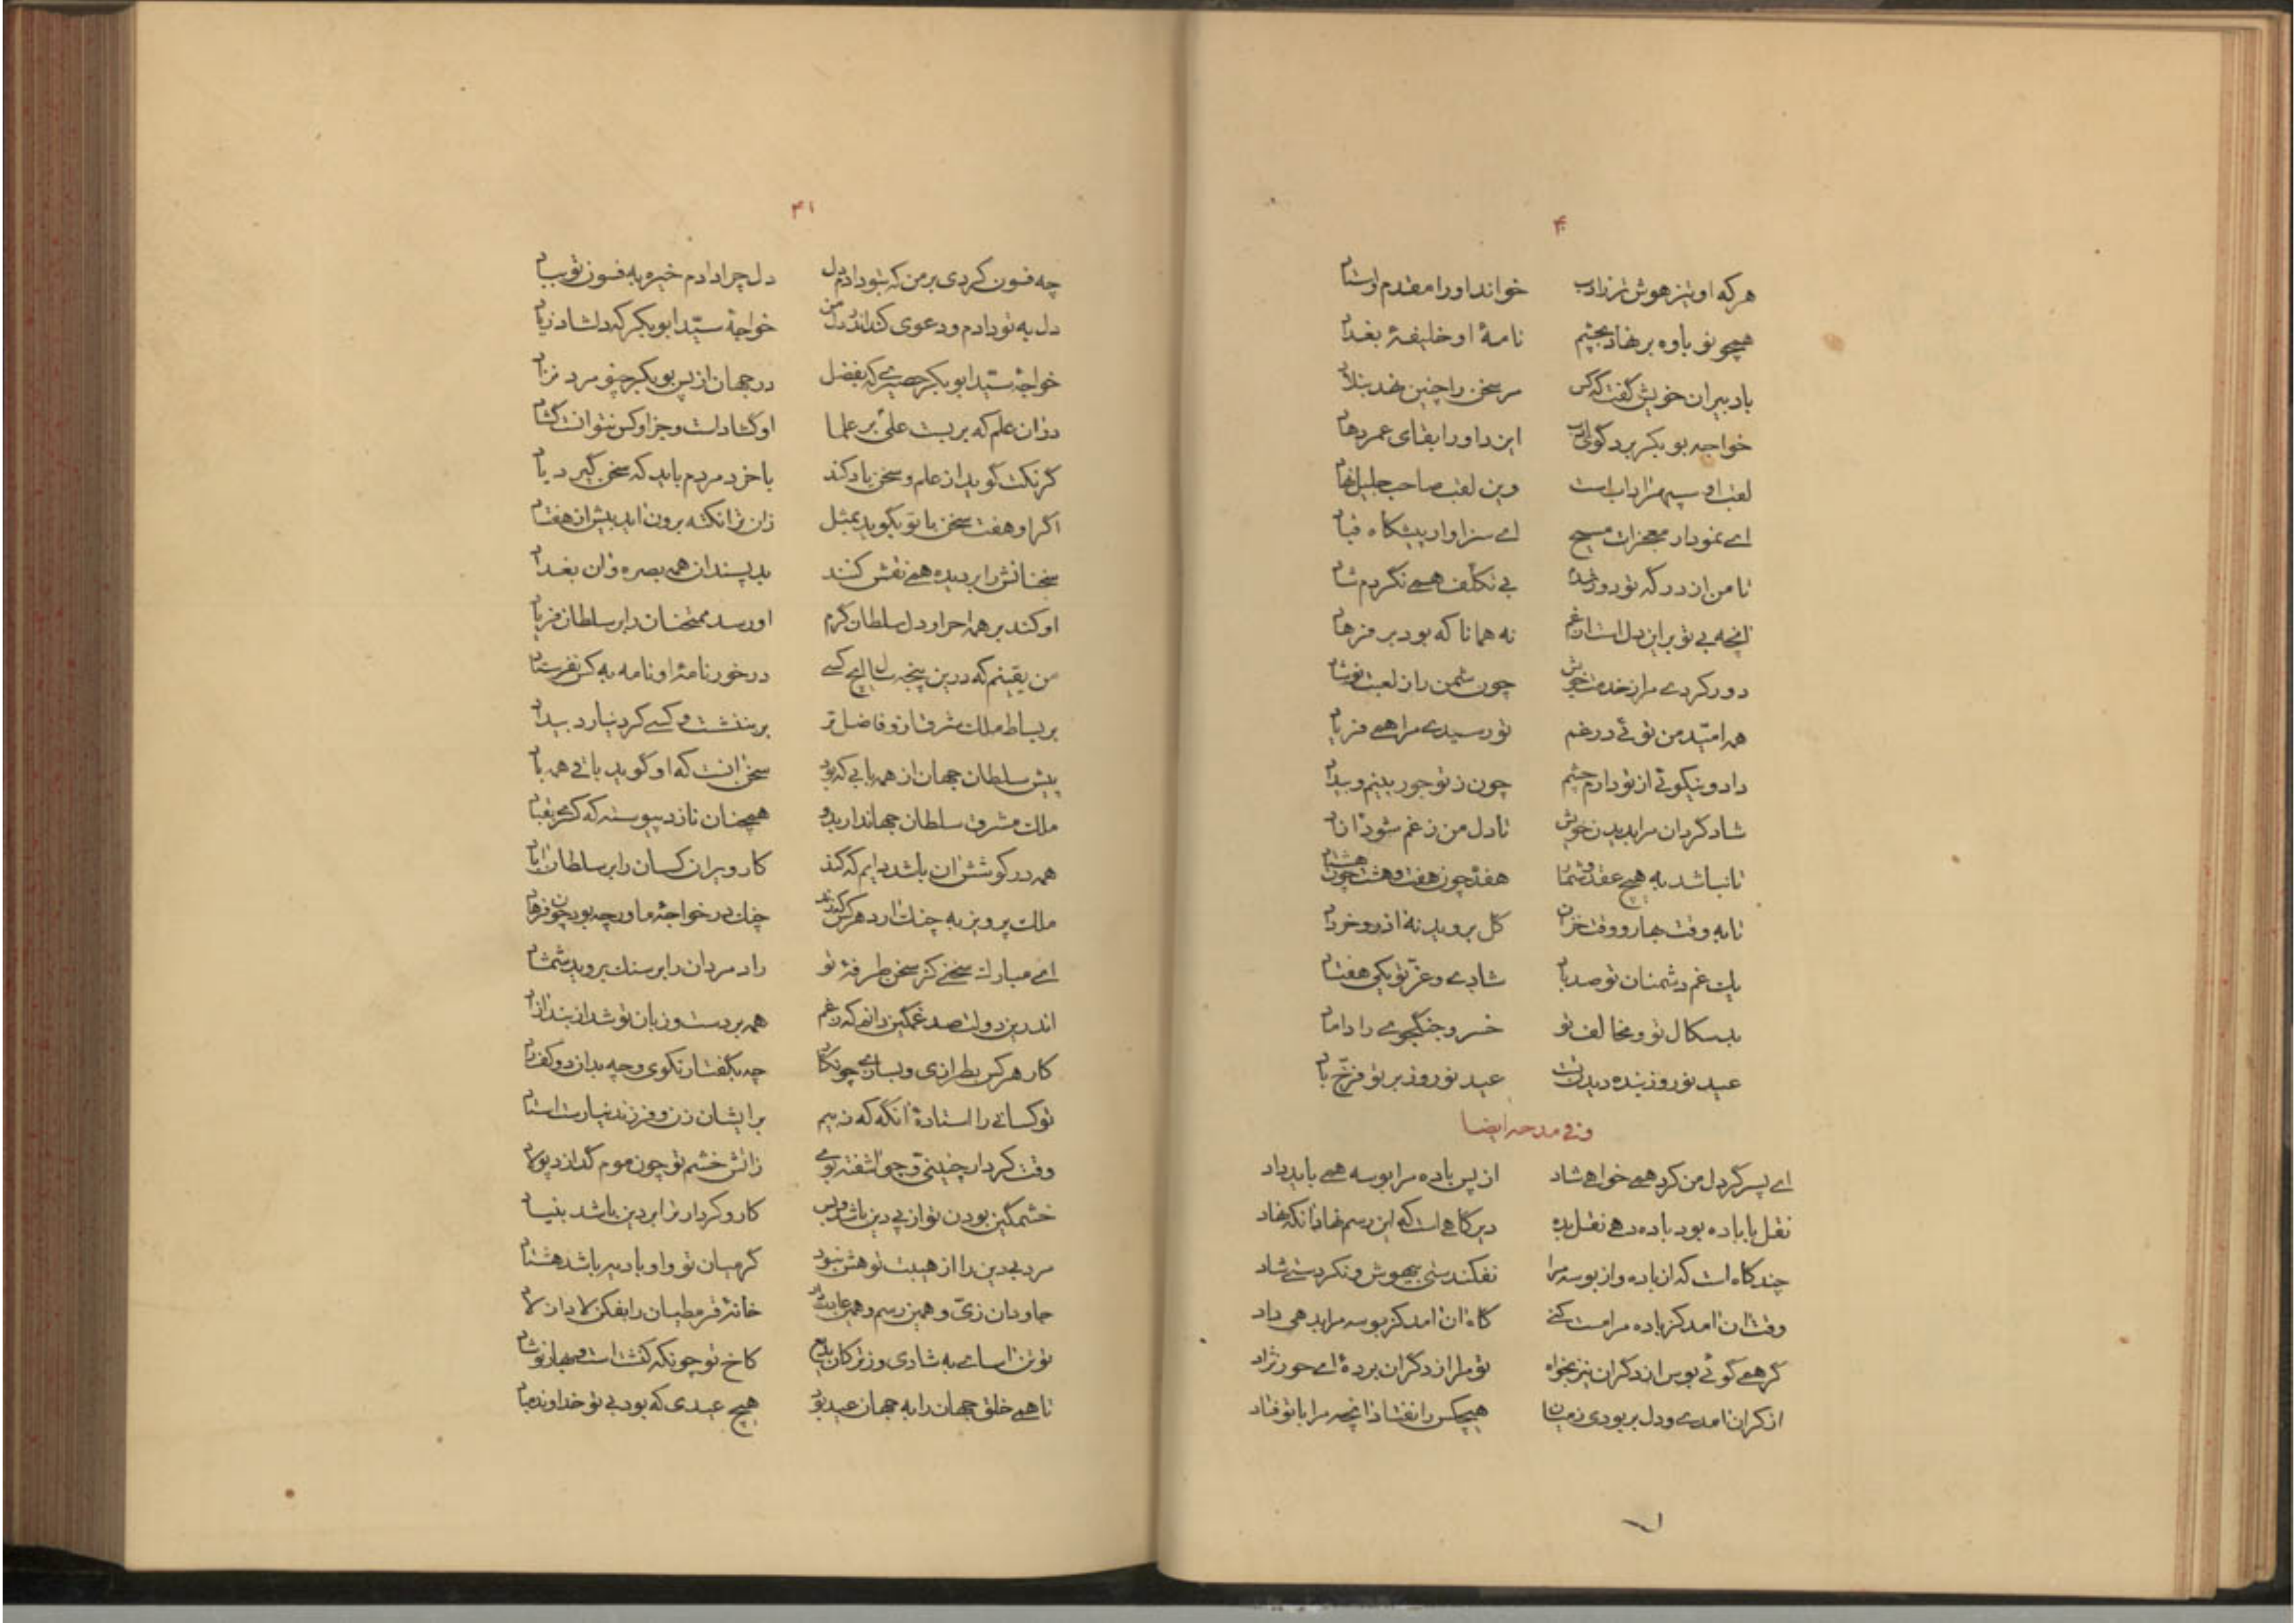 ۴۰
هرکه او تیز هوش‌تر ز ادب خواند او را مقدم و استاد
همچو نوباوه بر نهاد بچشم نامهٔ او خلیفهٔ بغداد
با دبیران خویش گفت که کس مر سخن را چنین نهد بنلاد
خواجه بوبکر برد گوی ادب ایزد او را بقای عمر دهاد
لقب او سپهر اداب است وین لقب صاحب جلیل نهاد
ای نمودار معجزات مسیح ای سزاوار پیشگاه قباد
تا من از درگه تو دور شدم بی تکلف همی نگردم شاد
انچه بی تو بر این دل است از غم نه همانا که بود بر فرهاد
دور کردی مرا ز خدمت خویش چون شمن را ز لعبت نوشاد
همه امید من توئی در غم تو رسیدی مرا همی فریاد
داد و نیکوئی از تو دارم چشم چون ز تو جور بینم و بیداد
شاد گردان مرا بدیدن خویش تا دل من ز غم شود ازاد
تا نباشد به هیچ عقد و شمار هفده چون هفت و هشت چون هشتاد
تا به وقت بهار و وقت خزان گل بروید نه اذر و خرداد
یک غم دشمنان تو صد باد شادی و عز تو یکی هفتاد
بدسگال تو و مخالف تو خسرو جنگجوی را داماد
عید نوروز بنده دیدن تست عید نوروز بر تو فرخ باد
و فی مدحه ایضا
ای پسر گر دل من کرد همی خواهی شاد از پس باده مرا بوسه همی باید داد
نقل با باده بود باده دهی نقل بده دیرگاهی است که این رسم نهاد انکه نهاد
چند گاه است که از باده و از بوسه مرا نفکندستی بیهوش و نکردستی شاد
وقت ان امد کز باده مرا مست کنی گاه ان امد کز بوسه مرا بدهی داد
گر همی گوئی بوس از دگران نیز بخواه تو مرا از دگران برده‌ای حور نژاد
از کران امدی و دل بربودی ز میان هیچکس را نفتاد انچه مرا با تو فتاد
۴۱
چه فسون کردی بر من که بتو دادم دل دل چرا دادم خیره به فسون تو بباد
دل به تو دادم و دعوی کند اندر دل من خواجهٔ سید ابوبکر که دلشاد زیاد
خواجهٔ سید ابوبکر حصیری که بفضل در جهان از پس بوبکر چنو مرد نزاد
در ان علم که بربست علی بر علما او گشاد است و جز او کس نتوانست گشاد
گر نکت گوید از علم و سخن یاد کند با خرد مردم باید که سخن گیرد یاد
اگر او هفت سخن با تو بگوید بمثل زان ترا نکته برون اید بیش از هفتاد
سخنانش را بر دیده همی نقش کنند بدپسندان همه بصره و ان بغداد
او کند بر همه احرار دل سلطان گرم او رسد ممتحنان را بر سلطان فریاد
من یقینم که در این پنجه سال ایچ کسی در خور نامهٔ او نامه به کس نفرستاد
بر بساط ملک مشرق ازو فاضل‌تر برننشست و کسی کرد نیارد بیداد
پیش سلطان جهان از همه بابی که بود سخن انست که او گوید باقی همه باد
ملک مشرق سلطان جهاندار بدو همچنان نازد پیوسته که کسری بقباد
همه در کوشش ان باشد دایم که کند کار ویران کسان را بر سلطان اباد
ملک پرویز به چنگ ارد هرکس کند چنگ در خواجهٔ ما ورچه بود چون فرهاد
ای مبارک سخنی کز سخن طرفهٔ تو راد مردان را بر سنگ بروید شمشاد
اندرین دولت صد غمگین دانم که ز غم همه بر دست و زبان تو شد از بند ازاد
کار هرکس بطرازی و بسازی چو نگار چه بگفتار نکوی و چه بدان دو کف راد
تو کسانی را استاده‌ٔ انگه که ز بیم بر ایشان زن و فرزند نیارست استاد
وقت کردار چنینی و چو اشفته بوی ز اتش خشم تو چون موم گدازد پولاد
خشمگین بودن تو از پی دین باشد و بس کار و کردار ترا بر دین باشد بنیاد
مرد بی‌دین را از هیبت تو هش نبود گر میان تو و او بادیه باشد هشتاد
جاودان زی و همین رسم و همین عادت دار خانهٔ قرمطیان را بفکن لاد از لاد
تو تن‌اسای به شادی و ز ترکان بدیع کاخ تو چونکه کنشت است و بهار نوشاد
تا همی خلق جهان را به جهان عید بود هیچ عیدی که بود بی تو خداوند مباد